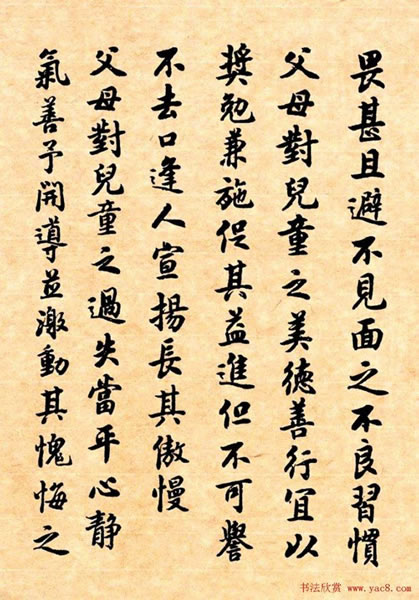 畏甚且避不見面之不良習慣
父母對兒童之美德善行宜以
獎勉兼施促其益進但不可譽
不去口逢人宣揚長其傲慢
父母對兒童之過失當平心靜
氣善予開導並激動其愧悔之
书法欣赏 www.yac8.com